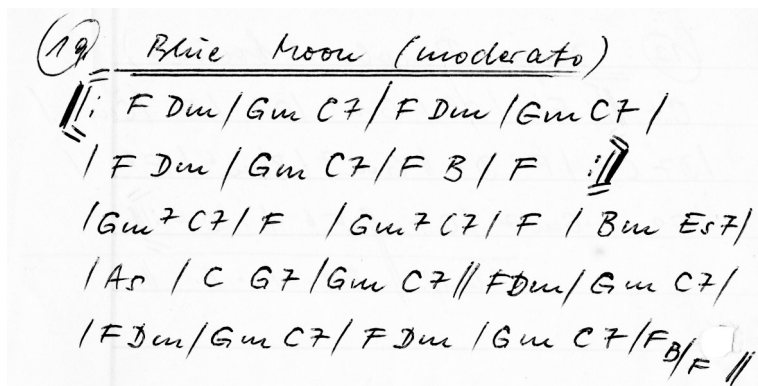 19. Blue Moon (moderato)
||: F Dm / Gm C7 / F Dm / Gm C7 /
/ F Dm / Gm C7 / F B / F :||
/ Gm7 C7 / F / Gm7 C7 / F / Bm Es7 /
/ As / C G7 / Gm C7 // F Dm / Gm C7 /
/ F Dm / Gm C7 / F Dm / Gm C7 / F B / F //